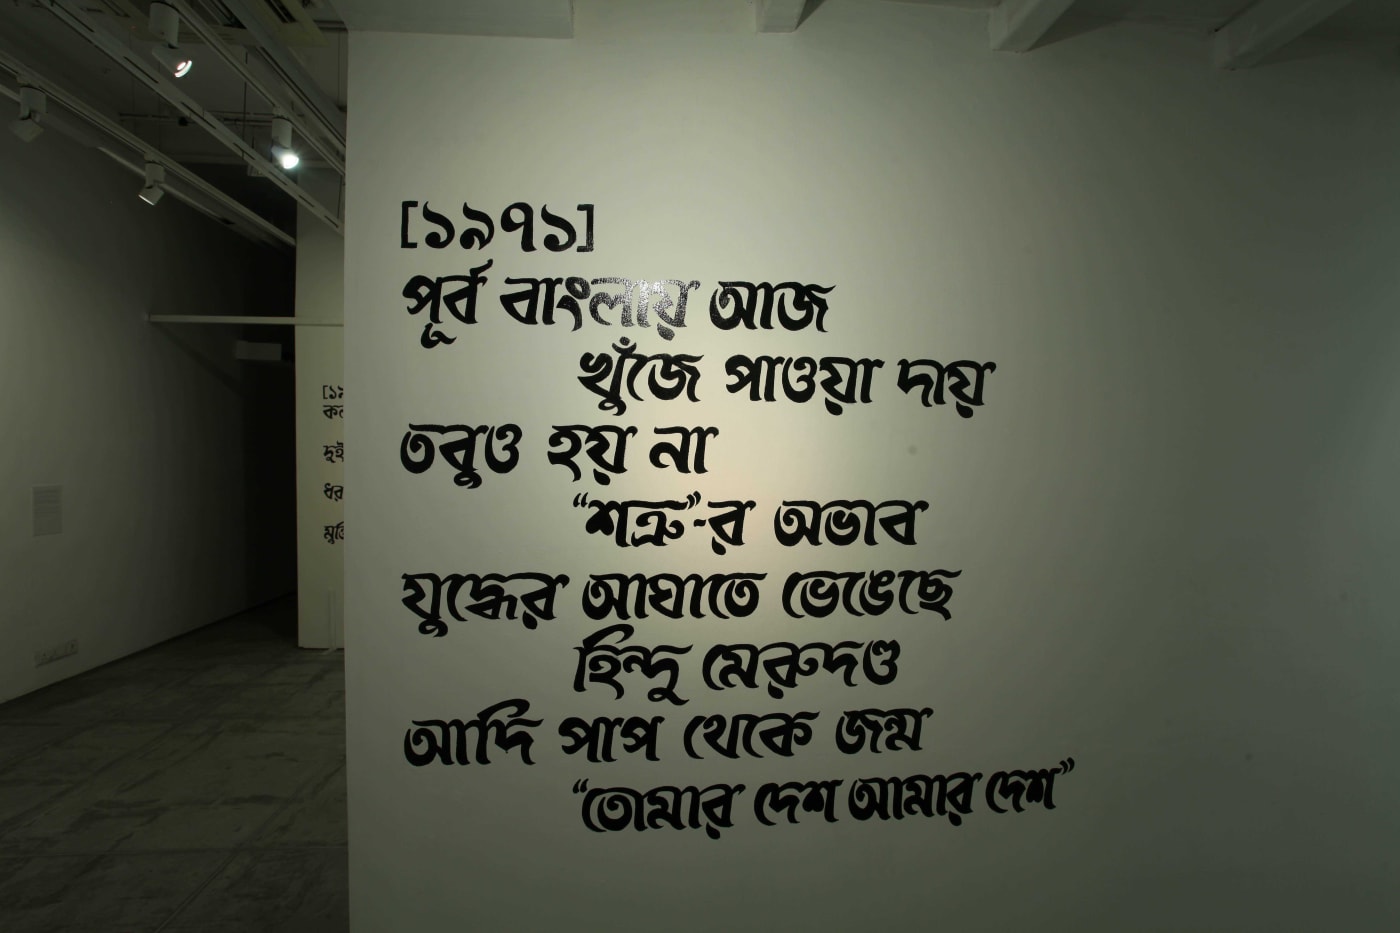 [১৯৭১]
পূর্ব বাংলায় আজ
খুঁজে পাওয়া দায়
তবুও হয় না
“শত্রু”-র অভাব
যুদ্ধের আঘাতে ভেঙেছে
হিন্দু মেরুদণ্ড
আদি পাপ থেকে জন্ম
“তোমার দেশ আমার দেশ”
দুই
ধর